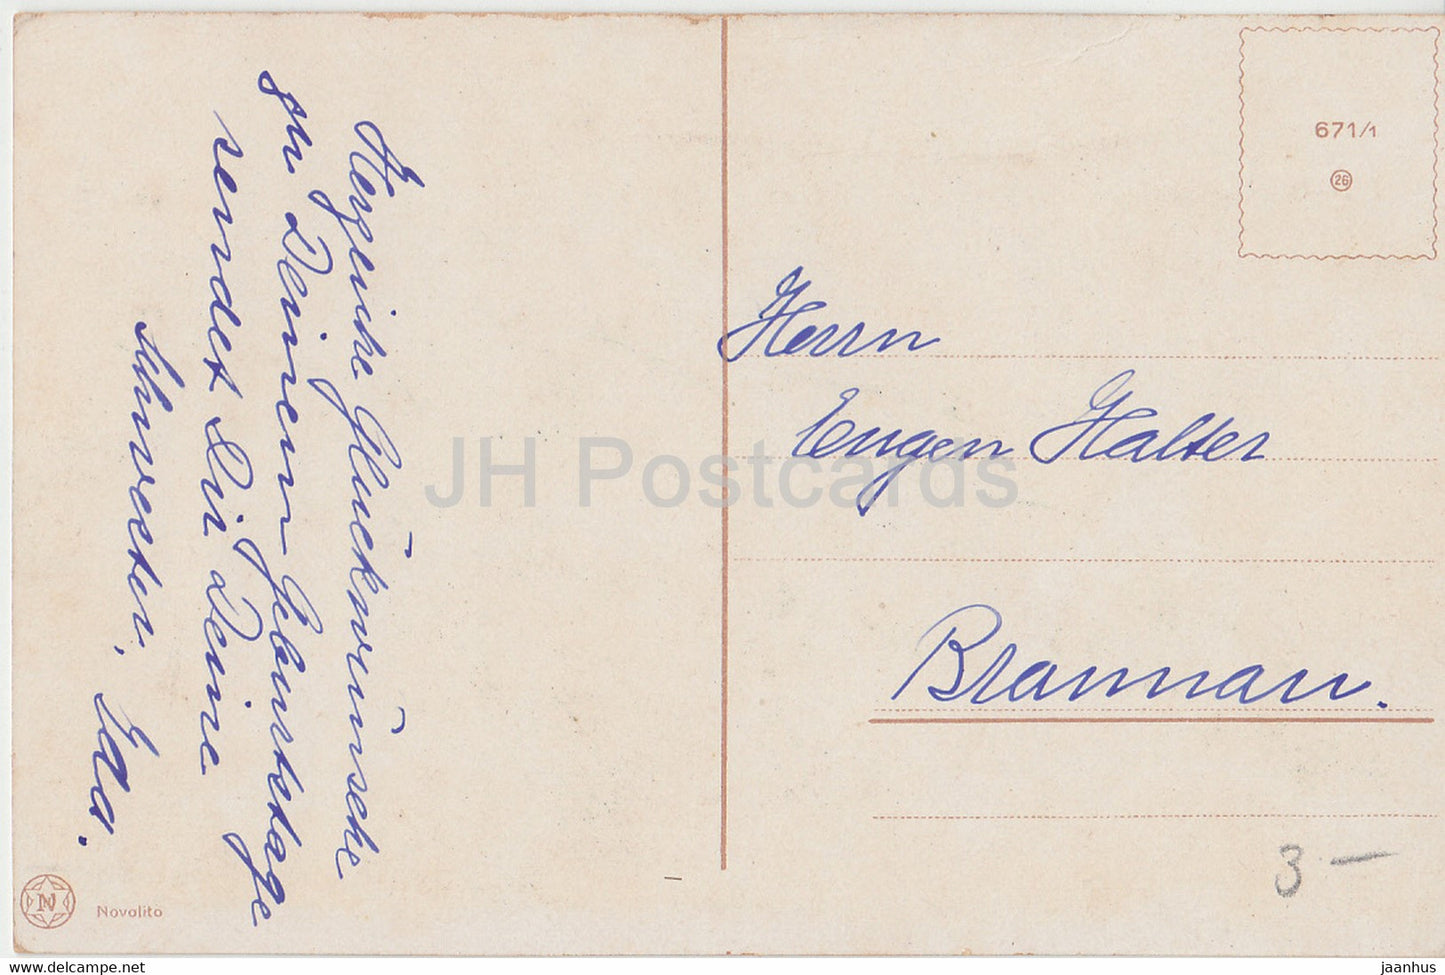 Herzliche Glückwünsche
zu Deinem Geburtstage
sendet Dir Deine
Schwester, Ida.
671/1
26
Herrn
Eugen Halter
Braunau.
3.—
N
Novolito
JH Postcards
hipstamp.com
jaanhus